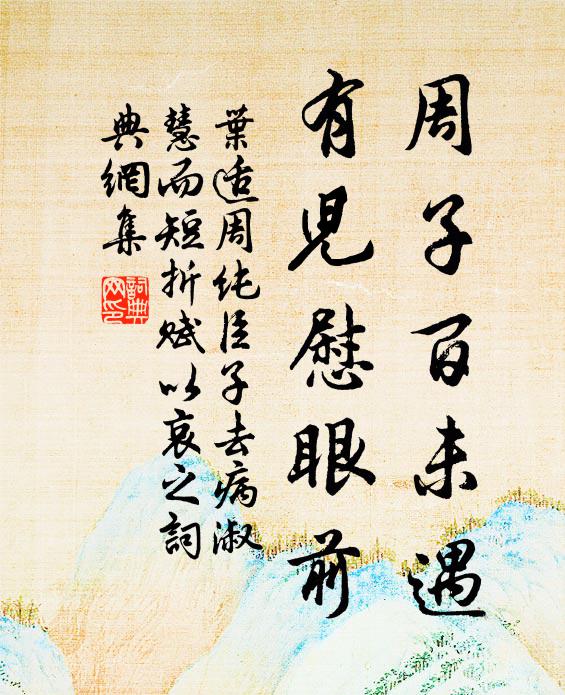 周子百未遇
有兒慰眼前
葉适周純臣子去病淑
慧而短折賦以哀之詞
典網集
詞典
网印